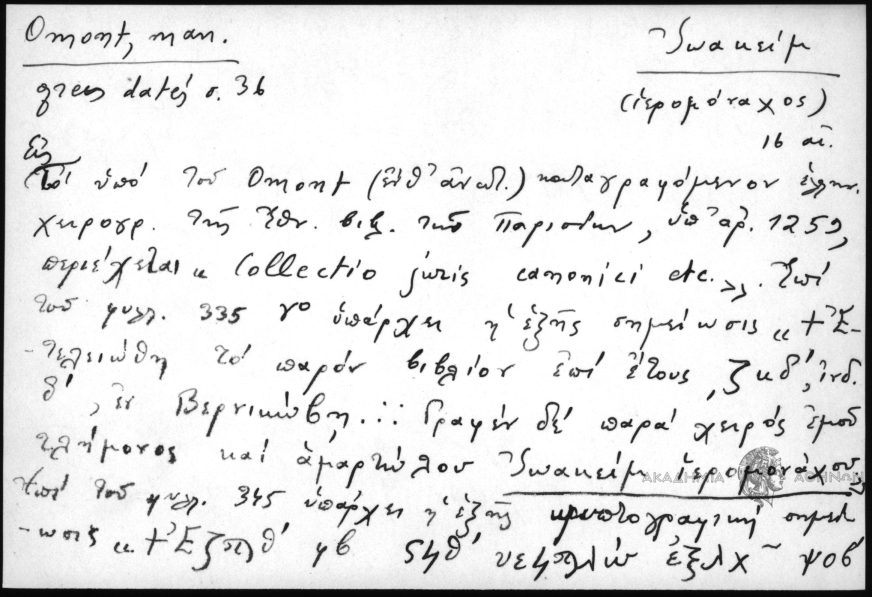 Omont, man.
grecs datés σ. 36
Ἰωακείμ
(ἱερομόναχος)
16 αἰ.
Εἰς
τό ὑπό τοῦ Omont (ἔνθ' ἀνωτ.) καταγραφόμενον ἑλλην.
χειρογρ. τῆς Ἐθν. βιβλ. τῶν Παρισίων, ὑπ' ἀρ. 1259,
περιέχεται « Collectio juris canonici etc. ». Ἐπί
τοῦ φυλλ. 335 ro ὑπάρχει ἡ ἑξῆς σημείωσις « + Ἐ-
-τελειώθη τό παρόν βιβλίον ἐπί ἔτους ͵ζκδ', ἰνδ.
θ', ἐν Βερνικώβῃ... Γραφέν δέ παρά χειρός ἐμοῦ
τλήμονος καί ἁμαρτώλου Ἰωακείμ ἱερομονάχου»
Ἐπί τοῦ φυλλ. 345 ὑπάρχει ἡ ἑξῆς κρυπτογραφική σημεί-
-ωσις « +
ΑΚΑΔΗΜΙΑ ΑΘΗΝΩΝ